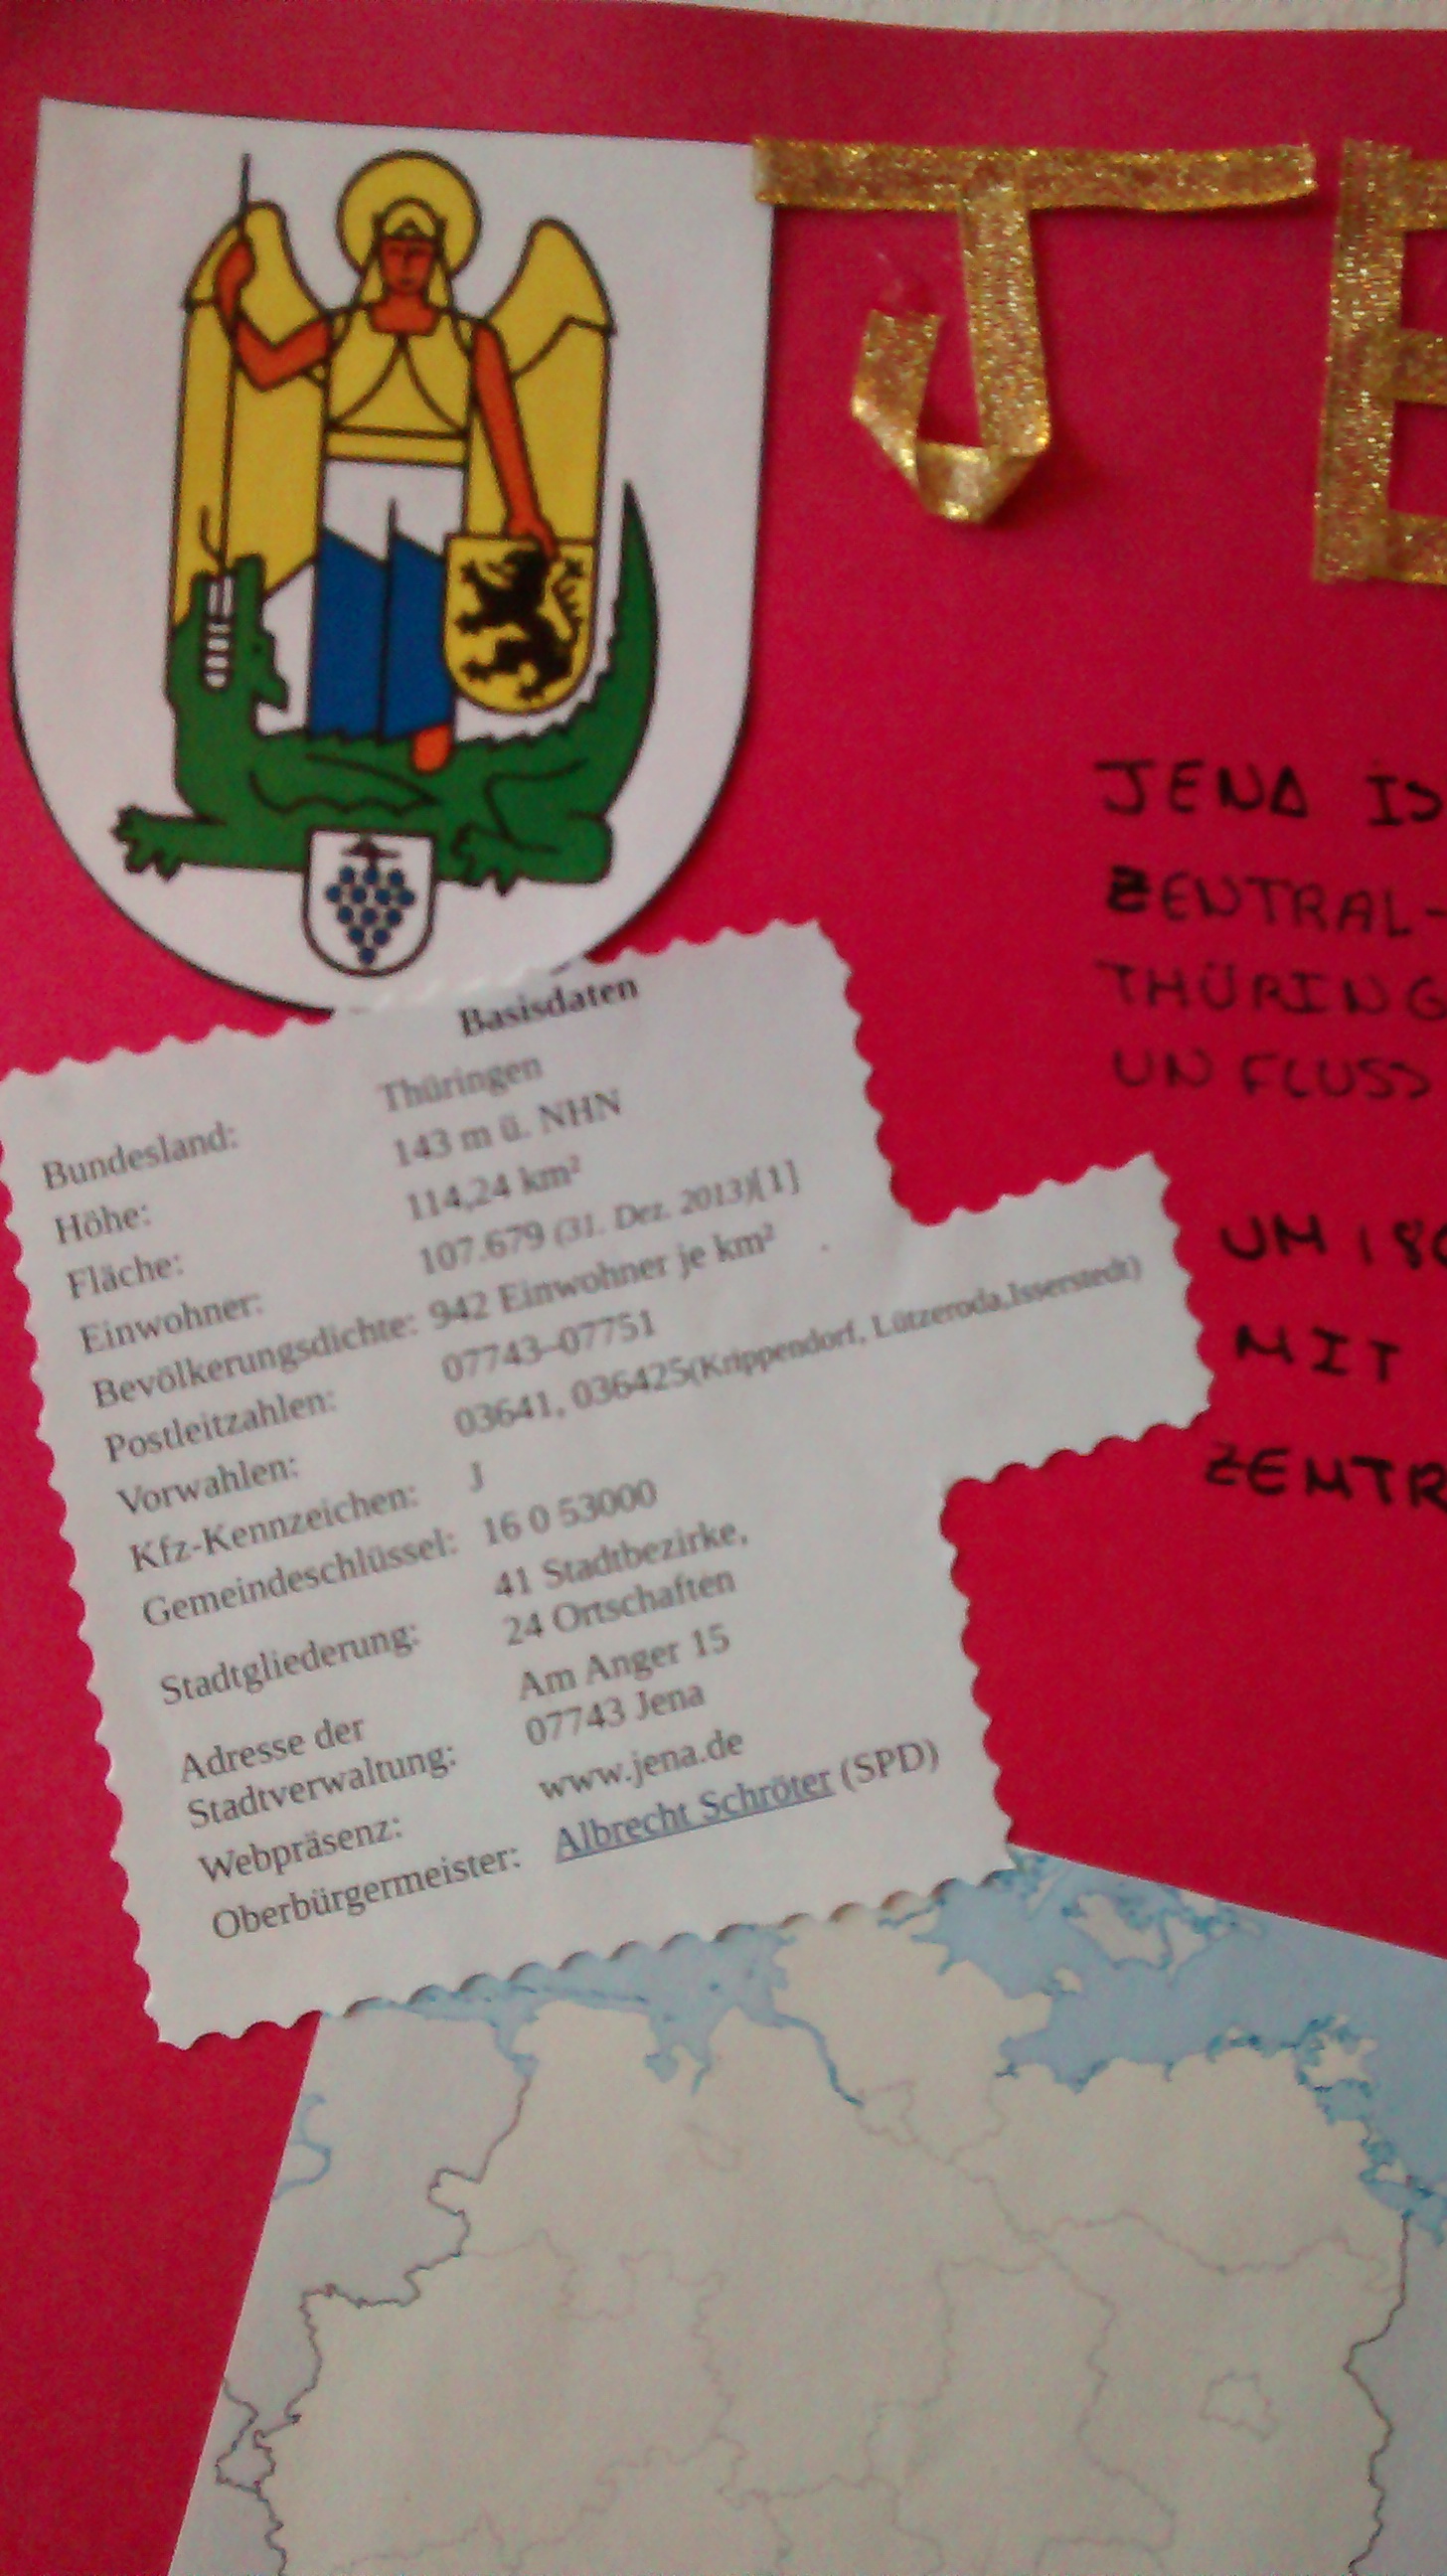 JE
JENA IS
ZENTRAL-
THÜRING
UN FLUSS
UM 180
MIT
ZENTR
Basisdaten
Bundesland: Thüringen
Höhe: 143 m ü. NHN
Fläche: 114,24 km²
Einwohner: 107.679 (31. Dez. 2013)[1]
Bevölkerungsdichte: 942 Einwohner je km²
Postleitzahlen: 07743–07751
Vorwahlen: 03641, 036425(Krippendorf, Lützeroda,Isserstedt)
Kfz-Kennzeichen: J
Gemeindeschlüssel: 16 0 53000
Stadtgliederung: 41 Stadtbezirke,
24 Ortschaften
Adresse der Am Anger 15
Stadtverwaltung: 07743 Jena
Webpräsenz: www.jena.de
Oberbürgermeister: Albrecht Schröter (SPD)